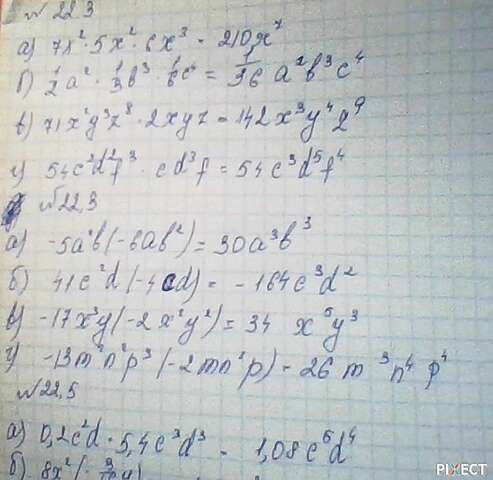 № 22.3
а) 7x² · 5x² · 6x³ = 210x⁷
б) 1/2 a² · 1/3 b³ · 1/6 c⁴ = 1/36 a²b³c⁴
в) 71x²y³z⁸ · 2xyz = 142x³y⁴z⁹
г) 54c²d²f³ · cd³f = 54c³d⁵f⁴
№ 22,3
а) -5a²b(-6ab²) = 30a³b³
б) 41c²d(-4cd) = -164c³d²
в) -17x³y(-2x²y²) = 34 x⁵y³
г) -13m²n²p³(-2mn²p) = 26 m³n⁴p⁴
№ 22,5
а) 0,2c²d · 5,4c³d³ = 1,08c⁵d⁴
б) 8x²(-
PIXECT